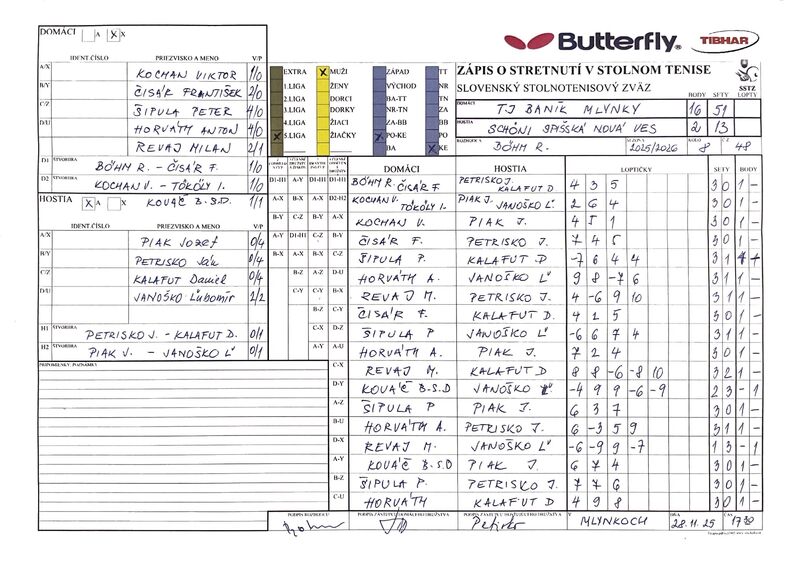 DOMÁCI A X X
Butterfly
TIBHAR
IDENT.ČÍSLO PRIEZVISKO A MENO V/P
A/X KOCHAN VIKTOR 1/0
B/Y ČISÁR FRANTIŠEK 2/0
C/Z ŠIPULA PETER 4/0
D/U HORVÁTH ANTON 4/0
REVAJ MILAN 2/1
D1 ŠTVORHRA BÖHM R. - ČISÁR F. 1/0
D2 ŠTVORHRA KOCHAN V. - TÖKÖLY I. 1/0
KOVÁČ B.S.D. 1/1
HOSTIA X A X
IDENT.ČÍSLO PRIEZVISKO A MENO V/P
A/X PIAK Jozef 0/4
B/Y PETRISKO Ján 0/4
C/Z KALAFUT Daniel 0/4
D/U JANOŠKO Ľubomír 2/2
H1 ŠTVORHRA PETRISKO J. - KALAFUT D. 0/1
H2 ŠTVORHRA PIAK J. - JANOŠKO Ľ 0/1
PRIPOMIENKY, POZNÁMKY
EXTRA X MUŽI ZÁPAD TT
1.LIGA ŽENY VÝCHOD NR
2.LIGA DORCI BA-TT TN
3.LIGA DORKY TN-NR ZA
4.LIGA ŽIACI ZA-BB BB
X 5.LIGA ŽIAČKY X PO-KE PO
BA X KE
ZÁPIS O STRETNUTÍ V STOLNOM TENISE
SLOVENSKÝ STOLNOTENISOVÝ ZVÄZ
SSTZ
BODY SETY LOPTY
DOMÁCI TJ BANÍK MLYNKY 16 51
HOSTIA SCHÖNI SPIŠSKÁ NOVÁ VES 2 13
ROZHODCA BÖHM R. SEZÓNA 2025/2026 KOLO 8 Č.Z. 48
DOMÁCI HOSTIA LOPTIČKY SETY BODY
D1-H1 BÖHM R. ČISÁR F PETRISKO J. KALAFUT D. 4 3 5 3 0 1 -
D2-H2 KOCHAN V. TÖKÖLY I. PIAK J. JANOŠKO Ľ 2 6 4 3 0 1 -
A-X KOCHAN V. PIAK J. 4 5 1 3 0 1 -
B-Y ČISÁR F. PETRISKO J. 7 4 5 3 0 1 -
C-Z ŠIPULA P. KALAFUT D -7 6 4 4 3 1 1 -
D-U HORVÁTH A. JANOŠKO Ľ 9 8 -7 6 3 1 1 -
B-X REVAJ M. PETRISKO J. 4 -6 9 10 3 1 1 -
ČISÁR F. KALAFUT D. 4 2 5 3 0 1 -
ŠIPULA P JANOŠKO Ľ -6 6 7 4 3 1 1 -
HORVÁTH A. PIAK J. 7 2 4 3 0 1 -
C-X REVAJ M. KALAFUT D 8 8 -6 -8 10 3 2 1 -
D-Y KOVÁČ B.S.D JANOŠKO Ľ -4 9 9 -6 -9 2 3 - 1
A-Z ŠIPULA P PIAK J. 6 3 7 3 0 1 -
B-U HORVÁTH A. PETRISKO J. 6 -3 5 9 3 1 1 -
D-X REVAJ M. JANOŠKO Ľ -6 -9 9 -7 1 3 - 1
A-Y KOVÁČ B.S.D PIAK J. 6 7 4 3 0 1 -
B-Z ŠIPULA P. PETRISKO J. 7 7 6 3 0 1 -
C-U HORVÁTH KALAFUT D 4 9 8 3 0 1 -
PODPIS ROZHODCU PODPIS ZÁSTUPCU DOMÁCEHO DRUŽSTVA PODPIS ZÁSTUPCU HOSŤUJÚCEHO DRUŽSTVA V MLYNKOCH DŇA 28.11.25 ČAS 17:30